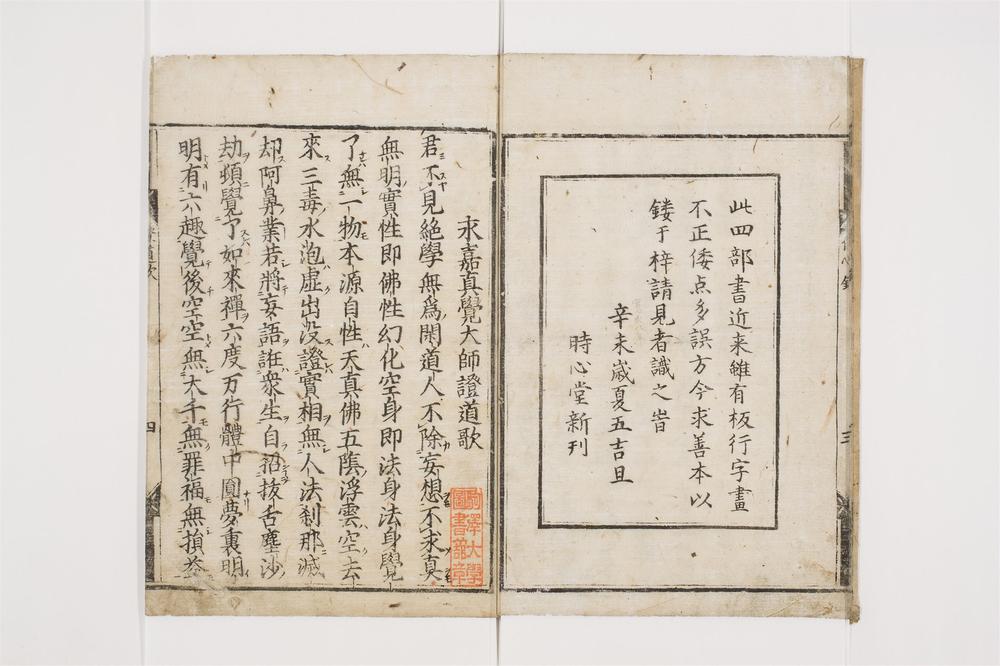 此四部書近来雖有板行字畫
不正倭点多誤方今求善本以
鏤于梓請見者識之旹
辛未歳夏五吉旦
時心堂新刊
三
永嘉真覺大師證道歌
君不見絶學無爲閑道人不除妄想不求真
無明實性即佛性幻化空身即法身法身覺
了無一物本源自性天真佛五陰浮雲空去
來三毒水泡虛出没證實相無人法刹那滅
却阿鼻業若將妄語誑衆生自招抜舌塵沙
劫頓覺了如來禪六度万行體中圓夢裏明
明有六趣覺後空空無大千無罪福無損益
四
駒澤大學
圖書館章